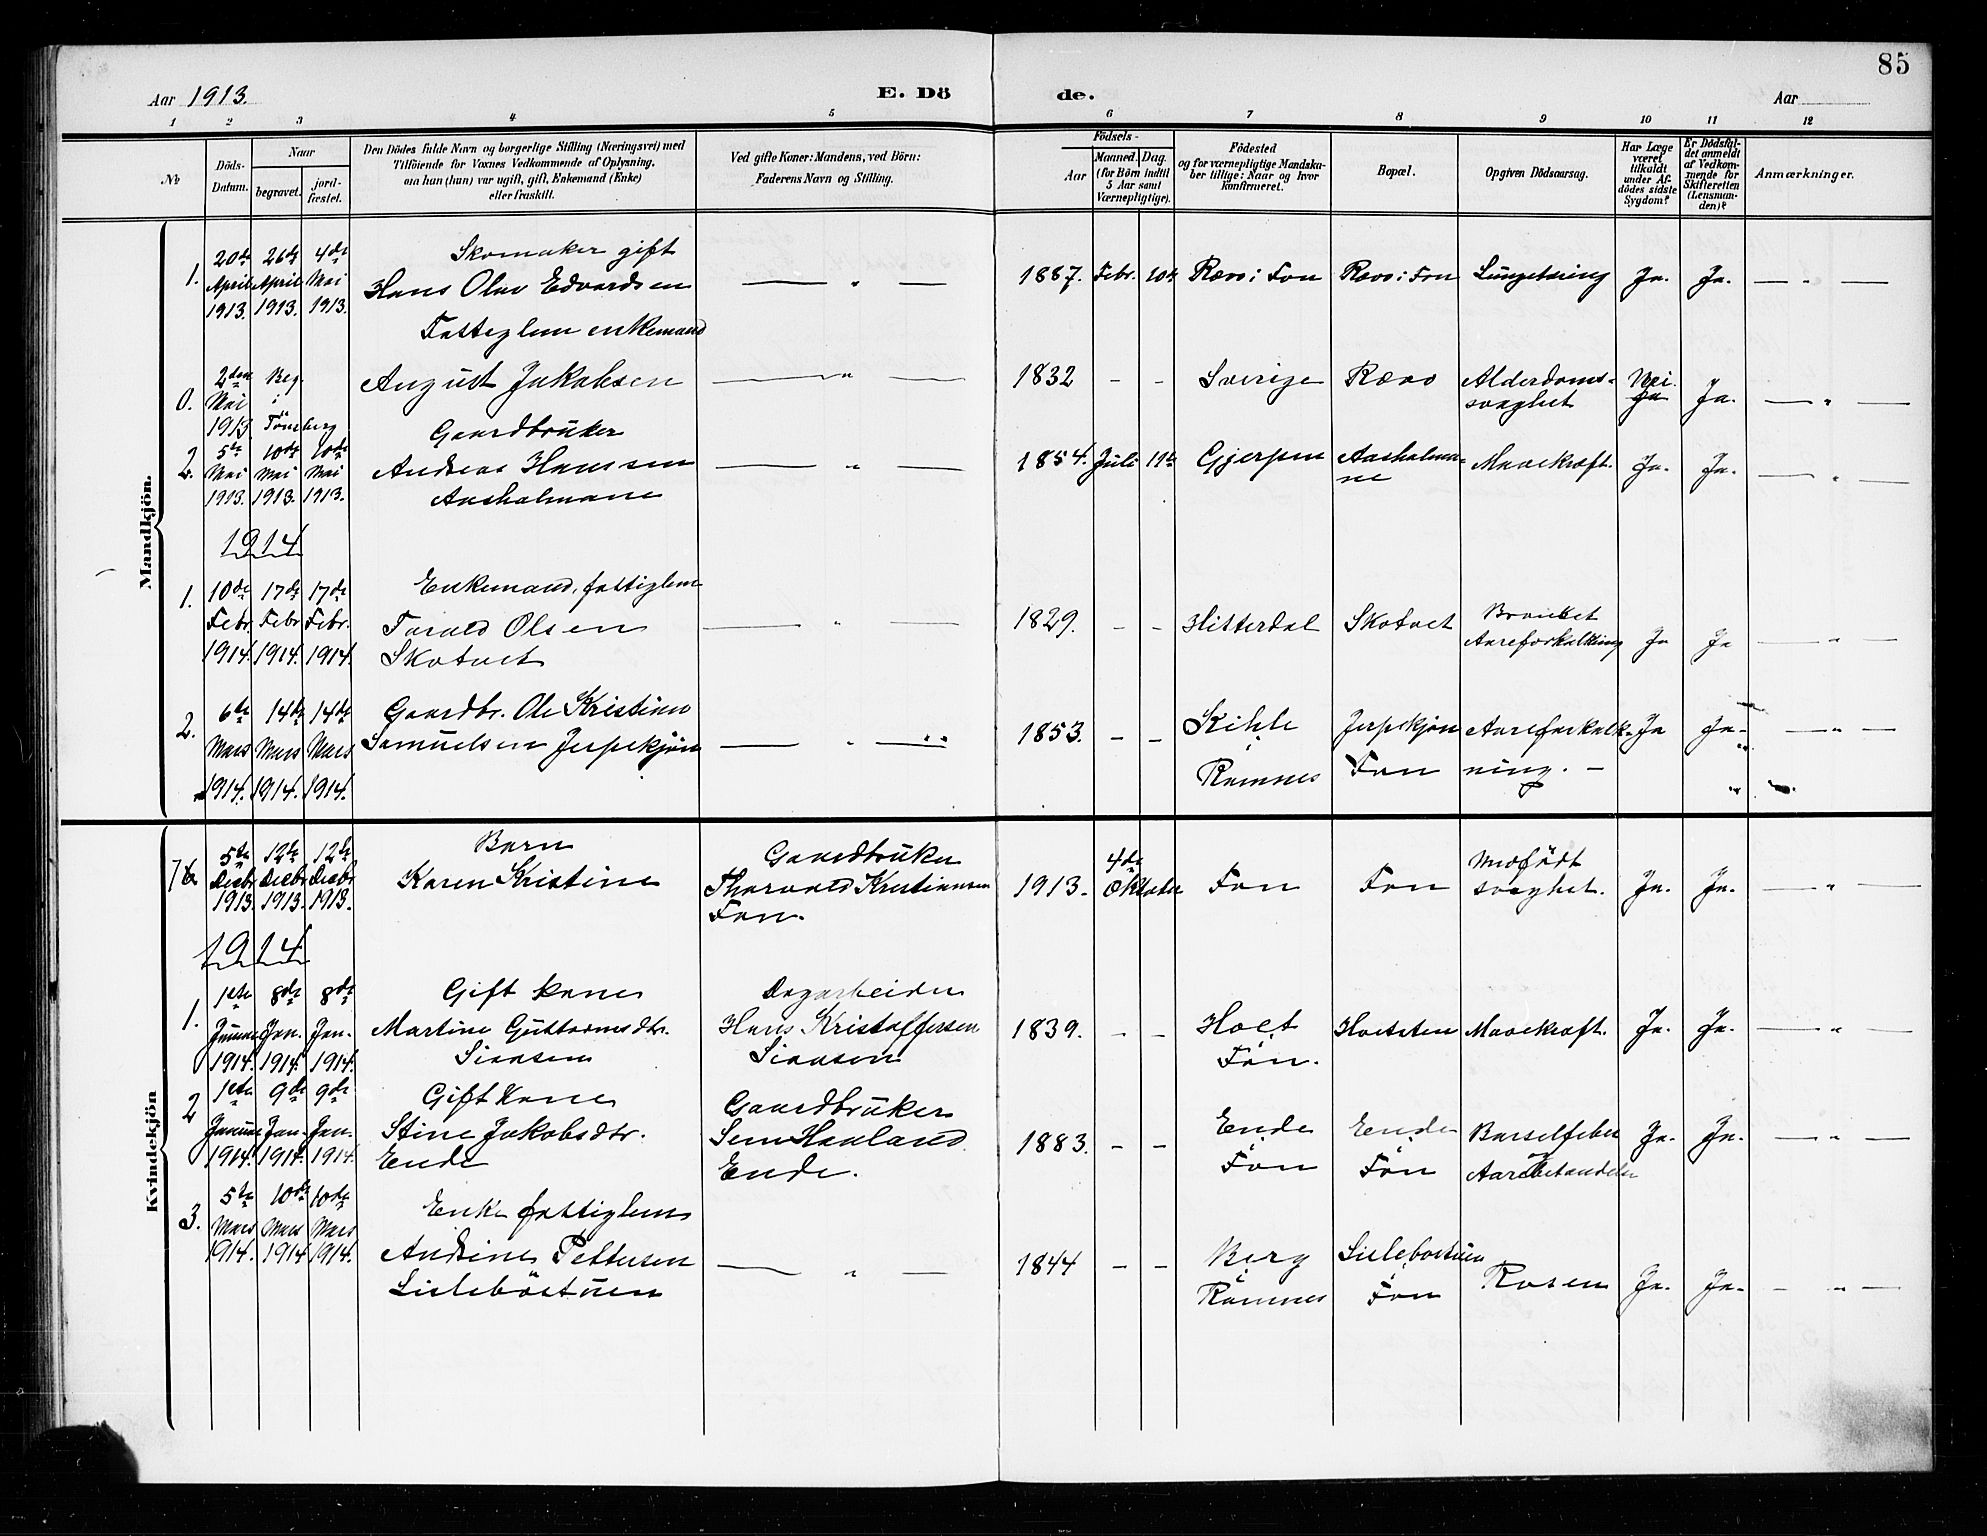 85
Aar 1913.
E. Dö de.
Aar
1 2 3 4 5 6 7 8 9 10 11 12
No
Döds-
Datum.
Naar
begravet.
jord-
fæstet.
Den Dödes fulde Navn og borgerlige Stilling (Næringsvei) med
Tilföiende for Voxnes Vedkommende af Oplysning,
om han (hun) var ugift, gift, Enkemand (Enke)
eller fraskilt.
Ved gifte Koner: Mandens, ved Börn:
Faderens Navn og Stilling.
Födsels-
Aar
Maaned. Dag.
(for Börn indtil
5 Aar samt
Værnepligtige).
Födested
og for værnepligtige Mandska-
ber tillige: Naar og hvor
konfirmeret.
Bopæl.
Opgiven Dödsaarsag.
Har Læge
været
tilkaldt
under Af-
dödes sidste
Sygdom?
Er Dödsfal-
det anmeldt
af Vedkom-
mende for
Skifteretten
(Lensman-
den)?
Anmærkninger.
Mandkjön.
1.
20de April 1913.
26de April 1913.
4de Mai 1913.
Skomaker gift
Hans Olav Edvardsen
— " —
1887. Febr. 10de
Ravo i Fon
Ravo i Fon
Lungetæring
Ja.
Ja.
— " —
0.
2den Mai 1913
Beg. i Tönsberg
Fattiglem enkemand
August Jakobsen
— " —
1832 - -
Sverige
Rævo
Alderdoms-
svaghet
Nei.
Ja
Ja.
— " —
2.
5te Mai 1913.
10de Mai 1913.
10de Mai 1913.
Gaardbruker
Andreas Hanssen
Aasholmane
— " —
1854. Juli 11te
Gjerpen
Aasholma-
ne
Mavekræft.
Ja.
Ja.
— " —
1914
1.
10de Febr. 1914.
17de Febr 1914.
17de Febr. 1914.
Enkemand, fattiglem
Torald Olsen
Skotvet
— " —
1829. - -
Hitterdal
Skotvet
Bronket
Aareforkalkning
Ja
Ja
— " —
2.
6te Mars 1914.
14de Mars 1914.
14de Mars 1914.
Gaardbr. Ole Kristian
Samuelsen Jerpekjøn
— " —
1853. - -
Kihle
i
Ramnes
Jerpekjøn
Fon
Aareforkalk-
ning. -
Ja
Ja-
— " —
Kvindekjön
5te Decbr 1913.
12te Decbr 1913.
12te Decbr 1913.
Barn
Karen Kristine
Gaardbruker
Thorvald Kristiansen
Fon.
1913. 4de Oktober
Fon
Fon
Medfödt
svaghet.
Ja.
Ja.
— " —
1914
1.
1ste Januar 1914.
8de Jan. 1914.
8de Jan. 1914.
Gift kone
Martine Guttormsdtr.
Sinnsen
Dagarbeider
Hans Kristoffersen
Sinnsen
1839. - -
Holt
i
Fon.
Holtsten
Mavekræft.
Ja.
Ja.
— " —
2
1ste Januar 1914.
9de Jan. 1914.
9de Jan. 1914.
Gift Kone
Stine Jakobsdtr.
Ende
Gaardbruker
Sem Haaland
Ende.
1883. - -
Ende
i
Fon
Ende
i
Fon
Barselfeber
Aarebetændelse
Ja.
Ja.
— " —
3.
5te Mars 1914.
10de Mars 1914
10de Mars 1914.
Enke fattiglem
Andrine Pettersen
Lislebøstuen
— " —
1844 - -
Berg
i
Ramnes
Lislebøstuen
i
Fon
Rosen
Ja.
Ja-
- " —